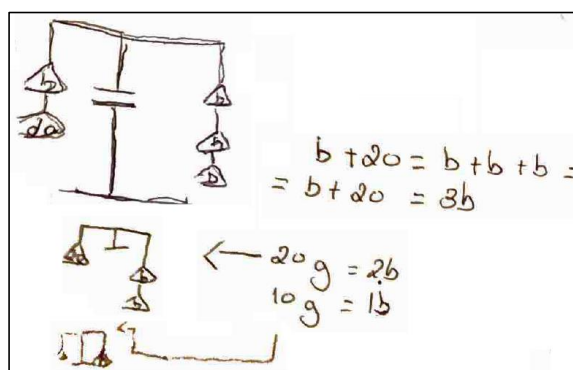 b b
20 b
b
b + 20 = b + b + b =
= b + 20 = 3b
20 b
b
← 20 g = 2b
10 g = 1b
b